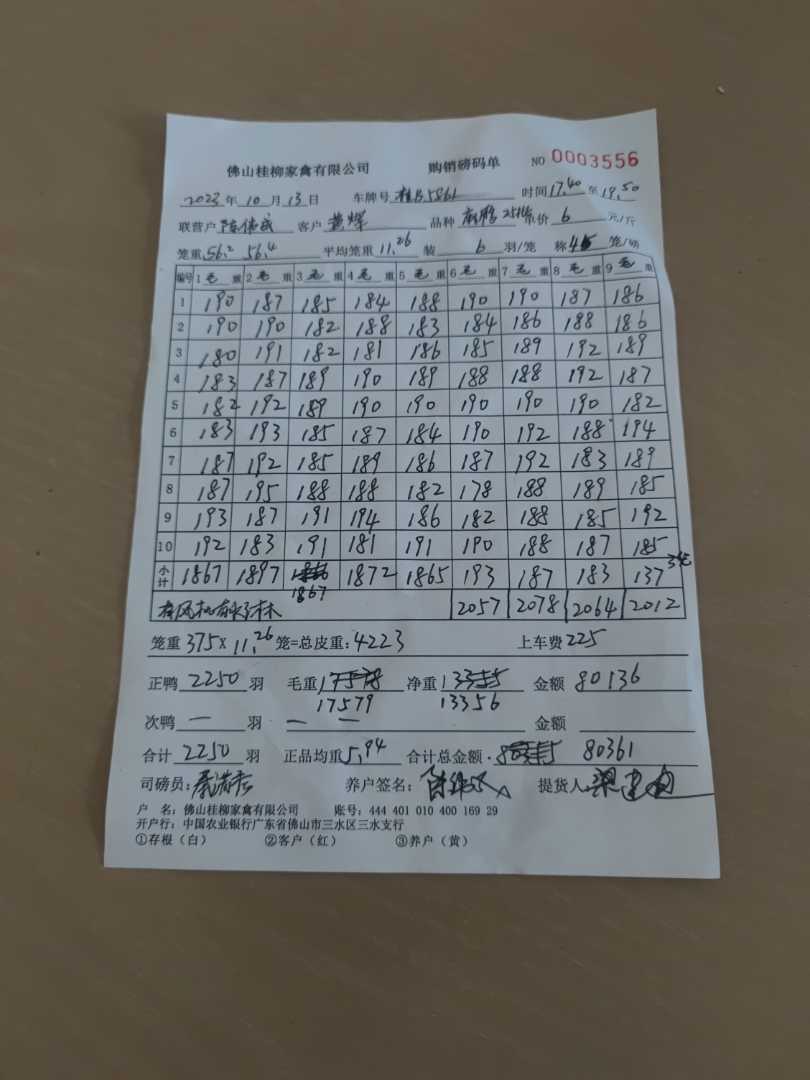 佛山桂柳家禽有限公司 购销磅码单 NO 0003556
2023年10月13日 车牌号 桂B5861 时间17.40至19.50
联营户 客户 黄辉 品种 单价 6 元/斤
笼重56.2 56.4 平均笼重11.26 装 6 羽/笼 称 笼/磅
编号 1毛重 2毛重 3毛重 4毛重 5毛重 6毛重 7毛重 8毛重 9毛重
1 190 187 185 184 188 190 190 187 186
2 190 190 182 188 183 184 186 188 186
3 180 191 182 181 186 185 189 192 189
4 183 187 189 190 189 188 188 192 187
5 182 192 189 190 190 190 190 190 182
6 183 193 185 187 184 190 192 188 194
7 187 192 185 189 186 187 192 183 189
8 187 195 188 188 182 178 188 189 185
9 193 187 191 194 186 182 188 185 192
10 192 183 191 181 191 190 188 187 185
小计 1867 1897 1867 1872 1865 193 187 183 137
2057 2078 2064 2012
笼重 375X11.26 笼=总皮重:4223 上车费225
正鸭 2250 羽 毛重 17579 净重 13356 金额 80136
次鸭 一 羽 — — 金额
合计 2250 羽 正品均重5.94 合计总金额 80361
司磅员: 养户签名: 提货人
户 名:佛山桂柳家禽有限公司 账号:444 401 010 400 169 29
开户行:中国农业银行广东省佛山市三水区三水支行
①存根(白) ②客户(红) ③养户(黄)